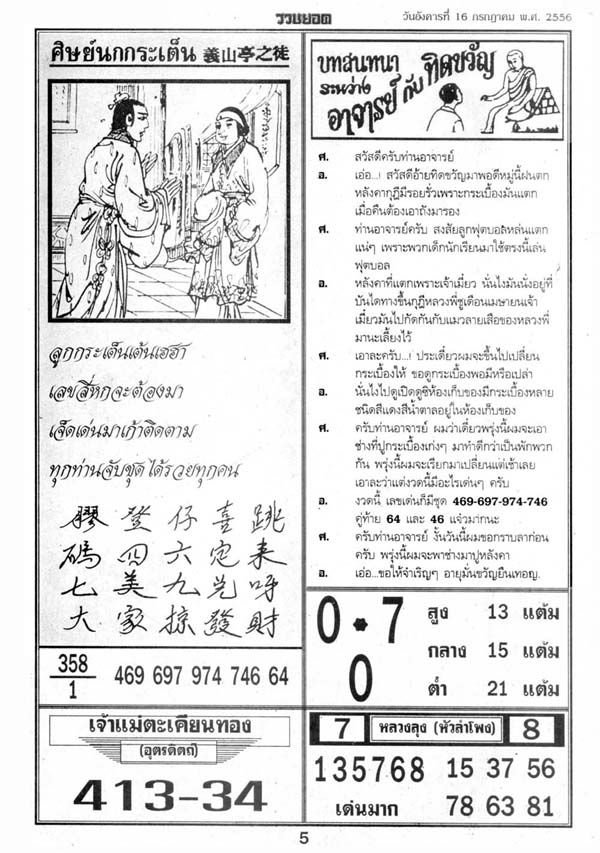 รวยยอด
วันอังคารที่ 16 กรกฎาคม พ.ศ. 2556
ศิษย์นกกระเต็น 義山亭之徒
ลูกกระเต็นเต้นเฮฮา
เลขสี่หกจะต้องมา
เจ็ดเด่นมาเก้าติดตาม
ทุกท่านจับชุดได้รวยทุกคน
膠 登 仔 喜 跳
碼 四 六 定 来
七 美 九 光 呀
大 家 掠 發 財
358
1
469 697 974 746 64
เจ้าแม่ตะเคียนทอง
(อุตรดิตถ์)
413-34
บทสนทนา
ระหว่าง
อาจารย์ กับ ทิดขวัญ
ศ. สวัสดีครับท่านอาจารย์
อ. เอ่อ...! สวัสดีอ้ายทิดขวัญมาพอดีหมู่นี้ฝนตก
หลังคากุฏิมีรอยรั่วเพราะกระเบื้องมันแตก
เมื่อคืนต้องเอาถังมารอง
ศ. ท่านอาจารย์ครับ สงสัยลูกฟุตบอลหล่นแตก
แน่ๆ เพราะพวกเด็กนักเรียนมาใช้ตรงนี้เล่น
ฟุตบอล
อ. หลังคาที่แตกเพราะเจ้าเมี่ยว นั่นไงมันนั่งอยู่ที่
บันไดทางขึ้นกุฏิหลวงพี่ชูเดือนเมษายนเจ้า
เมี่ยวมันไปกัดกันกับแมวลายเสือของหลวงพี่
มานะเลี้ยงไว้
ศ. เอาละครับ...! ประเดี๋ยวผมจะขึ้นไปเปลี่ยน
กระเบื้องให้ ขอดูกระเบื้องพอมีหรือเปล่า
อ. นั่นไงไปดูเปิดดูซิห้องเก็บของมีกระเบื้องหลาย
ชนิดสีแดงสีน้ำตาลอยู่ในห้องเก็บของ
ศ. ครับท่านอาจารย์ ผมว่าเดี๋ยวพรุ่งนี้ผมจะเอา
ช่างที่ปูกระเบื้องเก่งๆ มาทำดีกว่าเป็นพักพวก
กัน พรุ่งนี้ผมจะเรียกมาเปลี่ยนแต่เช้าเลย
เอาละว่าแต่งวดนี้มีอะไรเด่นๆ ครับ
อ. งวดนี้ เลขเด่นก็มีชุด 469-697-974-746
คู่ท้าย 64 และ 46 แจ๋วมากนะ
ศ. ครับท่านอาจารย์ งั้นวันนี้ผมขอกราบลาก่อน
ครับ พรุ่งนี้ผมจะพาช่างมาปูหลังคา
อ. เอ่อ...ขอให้จำเริญๆ อายุมั่นขวัญยืนเทอญ.
0 • 7
0
สูง 13 แต้ม
กลาง 15 แต้ม
ต่ำ 21 แต้ม
7 หลวงลุง (หัวลำโพง) 8
135768 15 37 56
เด่นมาก 78 63 81
5